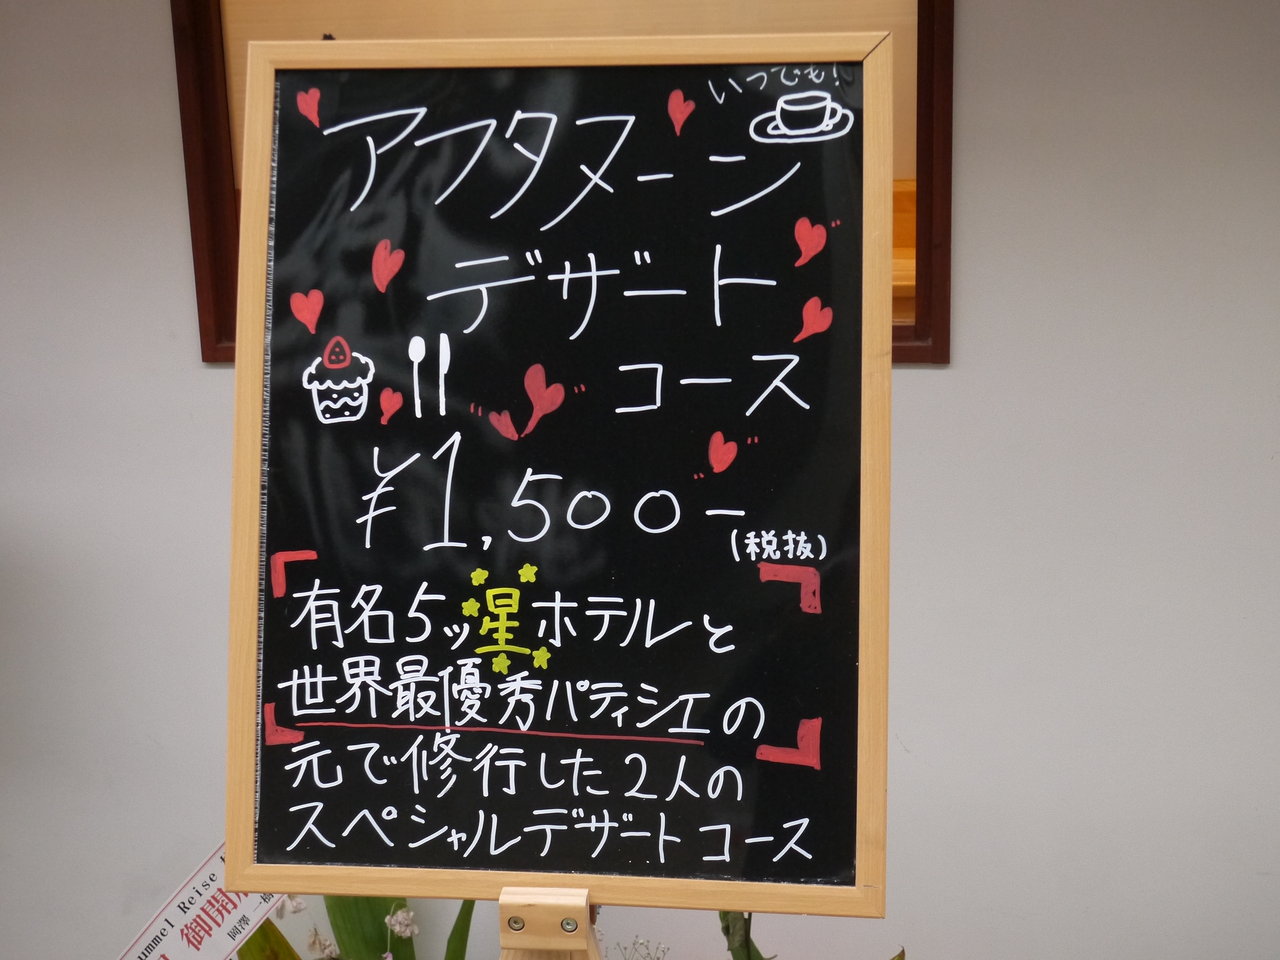 いつでも!
アフタヌーン
デザート
コース
¥1,500-
(税抜)
有名5ッ星ホテルと
世界最優秀パティシエの
元で修行した2人の
スペシャルデザートコース
ummel Reise
御開
岡澤 一樹